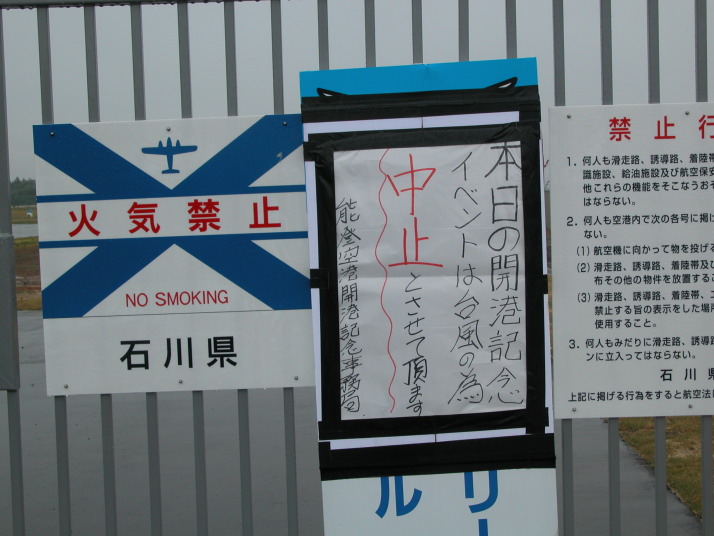 火気禁止
NO SMOKING
石川県
本日の開港記念
イベントは台風の為
中止とさせて頂ます
能登空港開港記念事務局
リー
ル
禁止行
1. 何人も滑走路、誘導路、着陸帯
識施設、給油施設及び航空保安
他これらの機能をそこなうおそ
はならない。
2. 何人も空港内で次の各号に掲げ
ない。
(1) 航空機に向かって物を投げる
(2) 滑走路、誘導路、着陸帯及び
布その他の物件を放置するこ
(3) 滑走路、誘導路、着陸帯、エ
禁止する旨の表示をした場所
使用すること。
3. 何人もみだりに滑走路、誘導路
ンに立入ってはならない。
石川県
上記に掲げる行為をすると航空法に